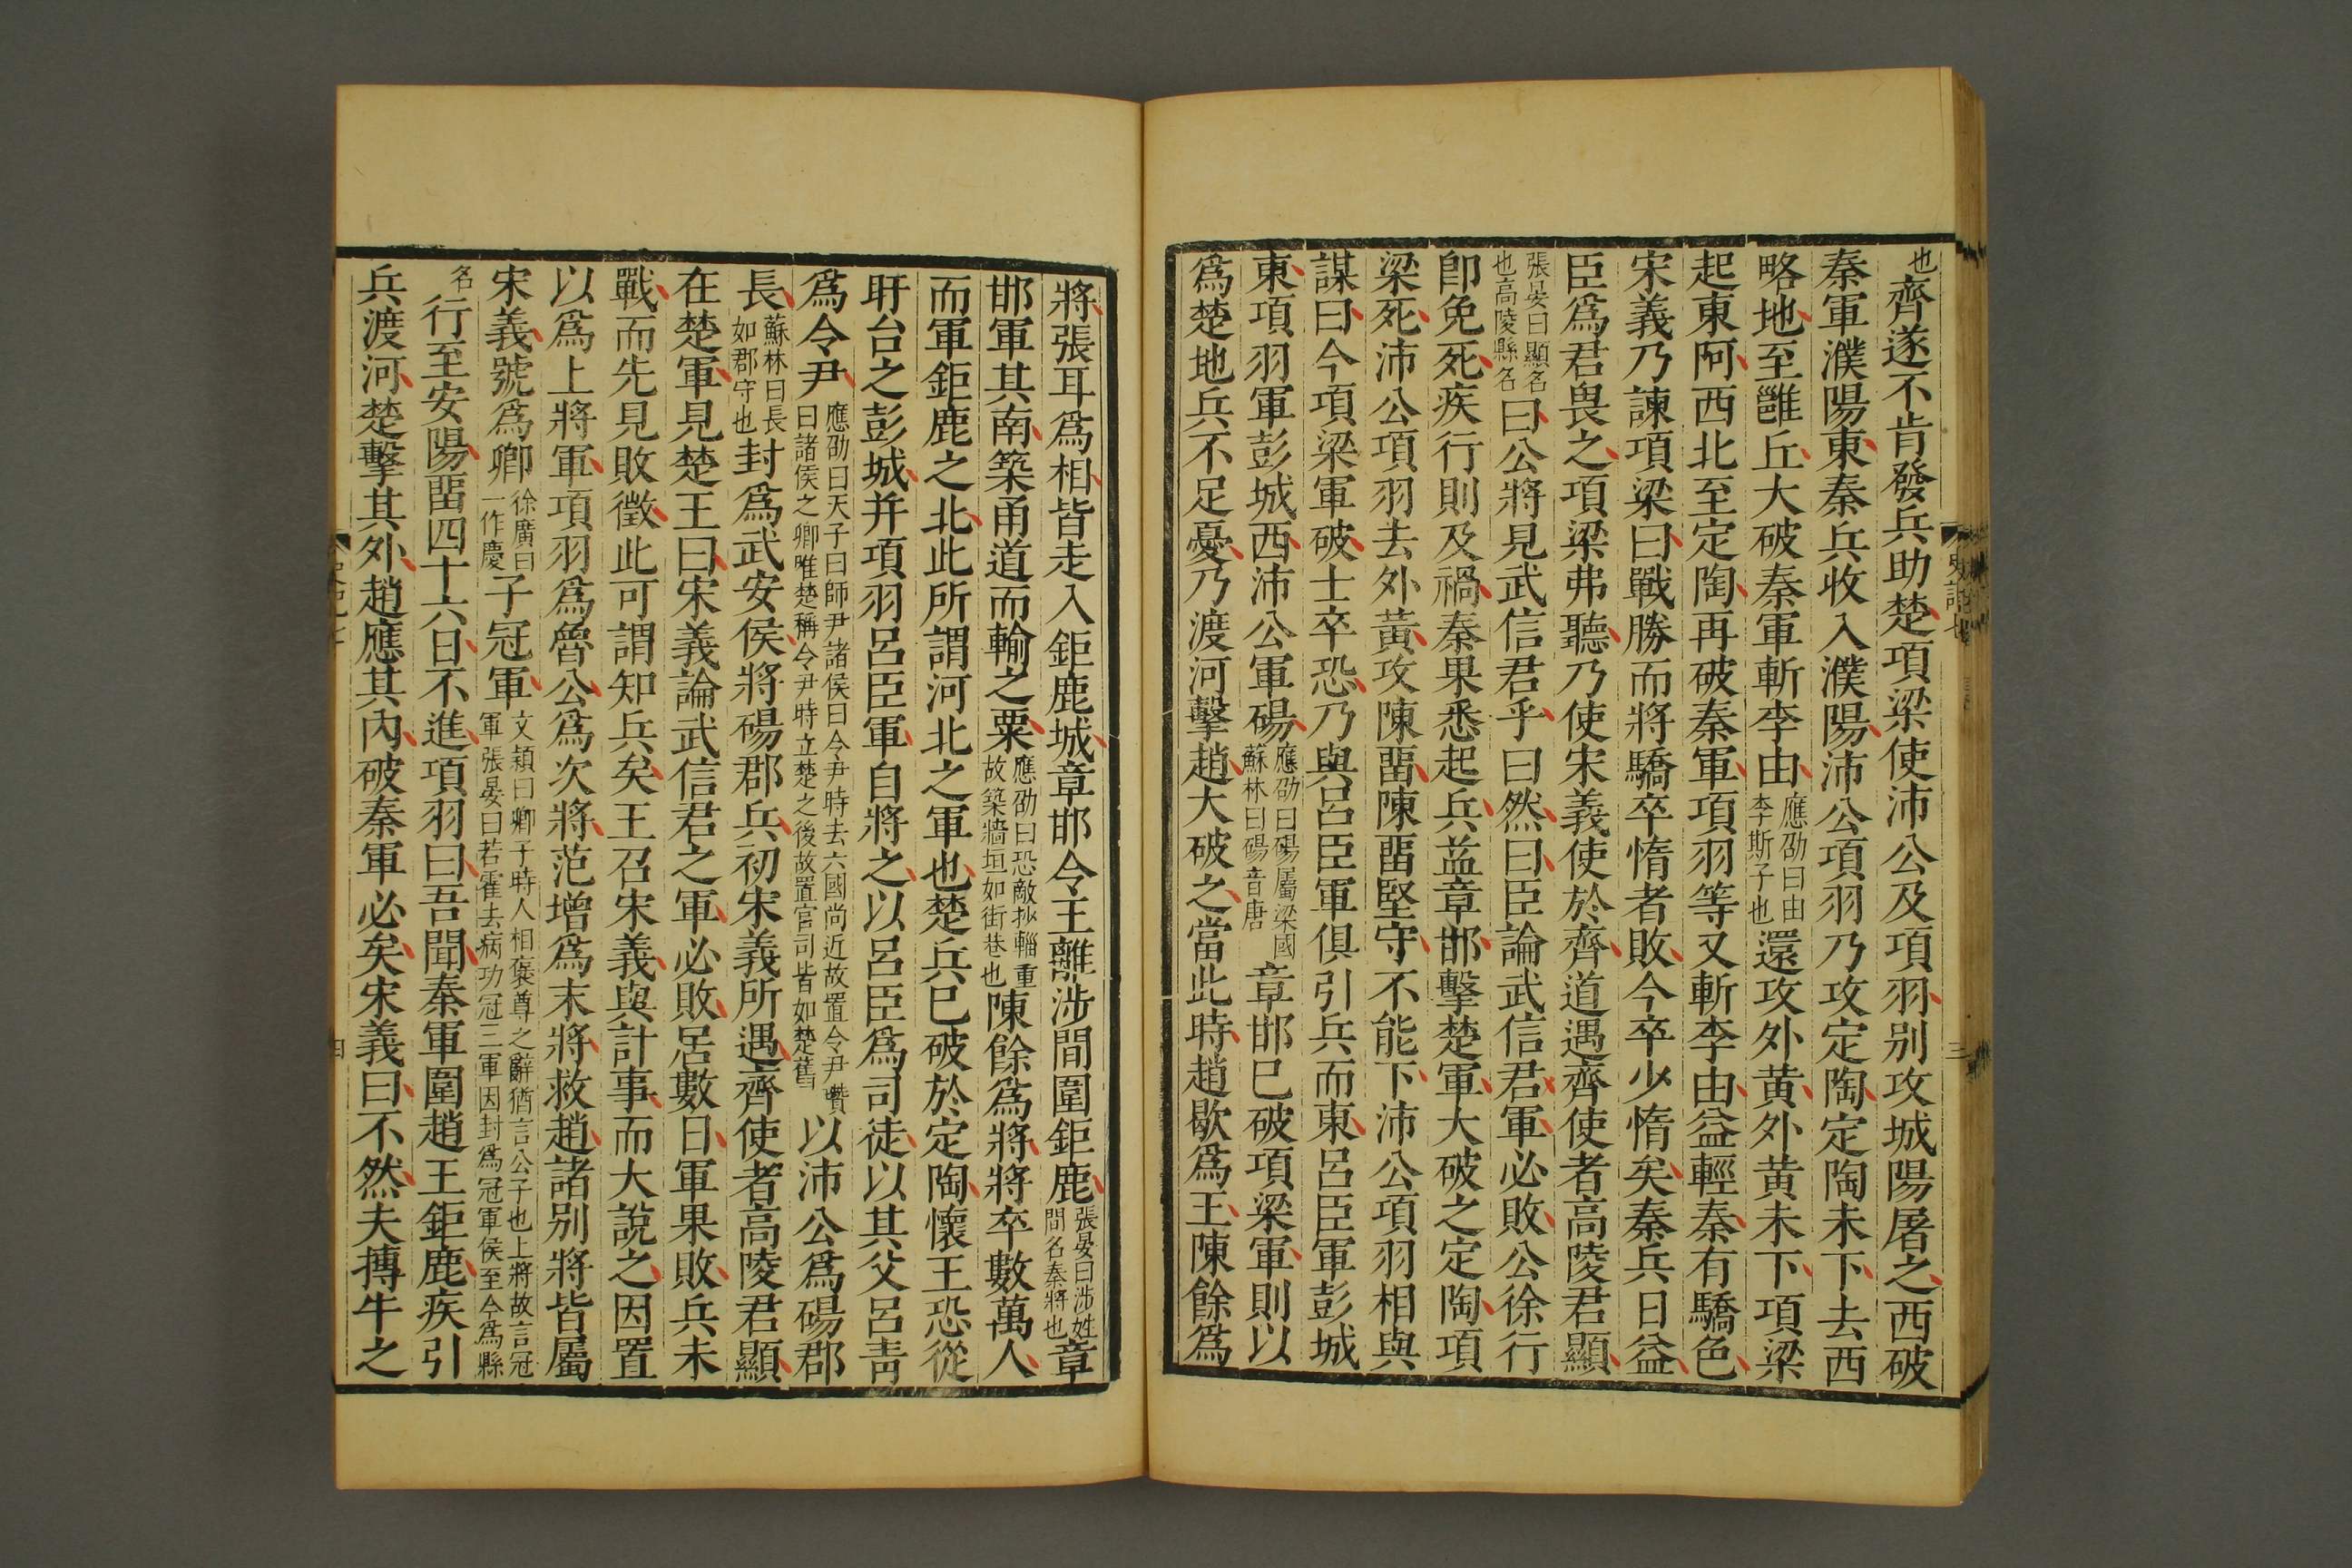 也齊遂不肯發兵助楚項梁使沛公及項羽别攻城陽屠之西破
秦軍濮陽東秦兵收入濮陽沛公項羽乃攻定陶定陶未下去西
略地至雝丘大破秦軍斬李由應劭曰由李斯子也還攻外黄外黄未下項梁
起東阿西北至定陶再破秦軍項羽等又斬李由益輕秦有驕色
宋義乃諫項梁曰戰勝而將驕卒惰者敗今卒少惰矣秦兵日益
臣爲君畏之項梁弗聽乃使宋義使於齊道遇齊使者高陵君顯
張晏曰顯名也高陵縣名曰公將見武信君乎曰然曰臣論武信君軍必敗公徐行
卽免死疾行則及禍秦果悉起兵益章邯擊楚軍大破之定陶項
梁死沛公項羽去外黄攻陳畱陳畱堅守不能下沛公項羽相與
謀曰今項梁軍破士卒恐乃與呂臣軍俱引兵而東呂臣軍彭城
東項羽軍彭城西沛公軍碭應劭曰碭屬梁國蘇林曰碭音唐章邯已破項梁軍則以
爲楚地兵不足憂乃渡河擊趙大破之當此時趙歇爲王陳餘爲
史記七
三
將張耳爲相皆走入鉅鹿城章邯令王離涉間圍鉅鹿張晏曰涉姓間名秦將也章
邯軍其南築甬道而輸之粟應劭曰恐敵抄輜重故築牆垣如街巷也陳餘爲將將卒數萬人
而軍鉅鹿之北此所謂河北之軍也楚兵已破於定陶懷王恐從
盱台之彭城并項羽呂臣軍自將之以呂臣爲司徒以其父呂青
爲令尹應劭曰天子曰師尹諸侯曰令尹時去六國尚近故置令尹瓚曰諸侯之卿唯楚稱令尹時立楚之後故置官司皆如楚舊以沛公爲碭郡
長蘇林曰長如郡守也封爲武安侯將碭郡兵初宋義所遇齊使者高陵君顯
在楚軍見楚王曰宋義論武信君之軍必敗居數日軍果敗兵未
戰而先見敗徵此可謂知兵矣王召宋義與計事而大說之因置
以爲上將軍項羽爲魯公爲次將范增爲末將救趙諸别將皆屬
宋義號爲卿徐廣曰一作慶子冠軍文穎曰卿子時人相襃尊之辭猶言公子也上將故言冠軍張晏曰若霍去病功冠三軍因封爲冠軍侯至今爲縣
名行至安陽畱四十六日不進項羽曰吾聞秦軍圍趙王鉅鹿疾引
兵渡河楚擊其外趙應其内破秦軍必矣宋義曰不然夫搏牛之
四